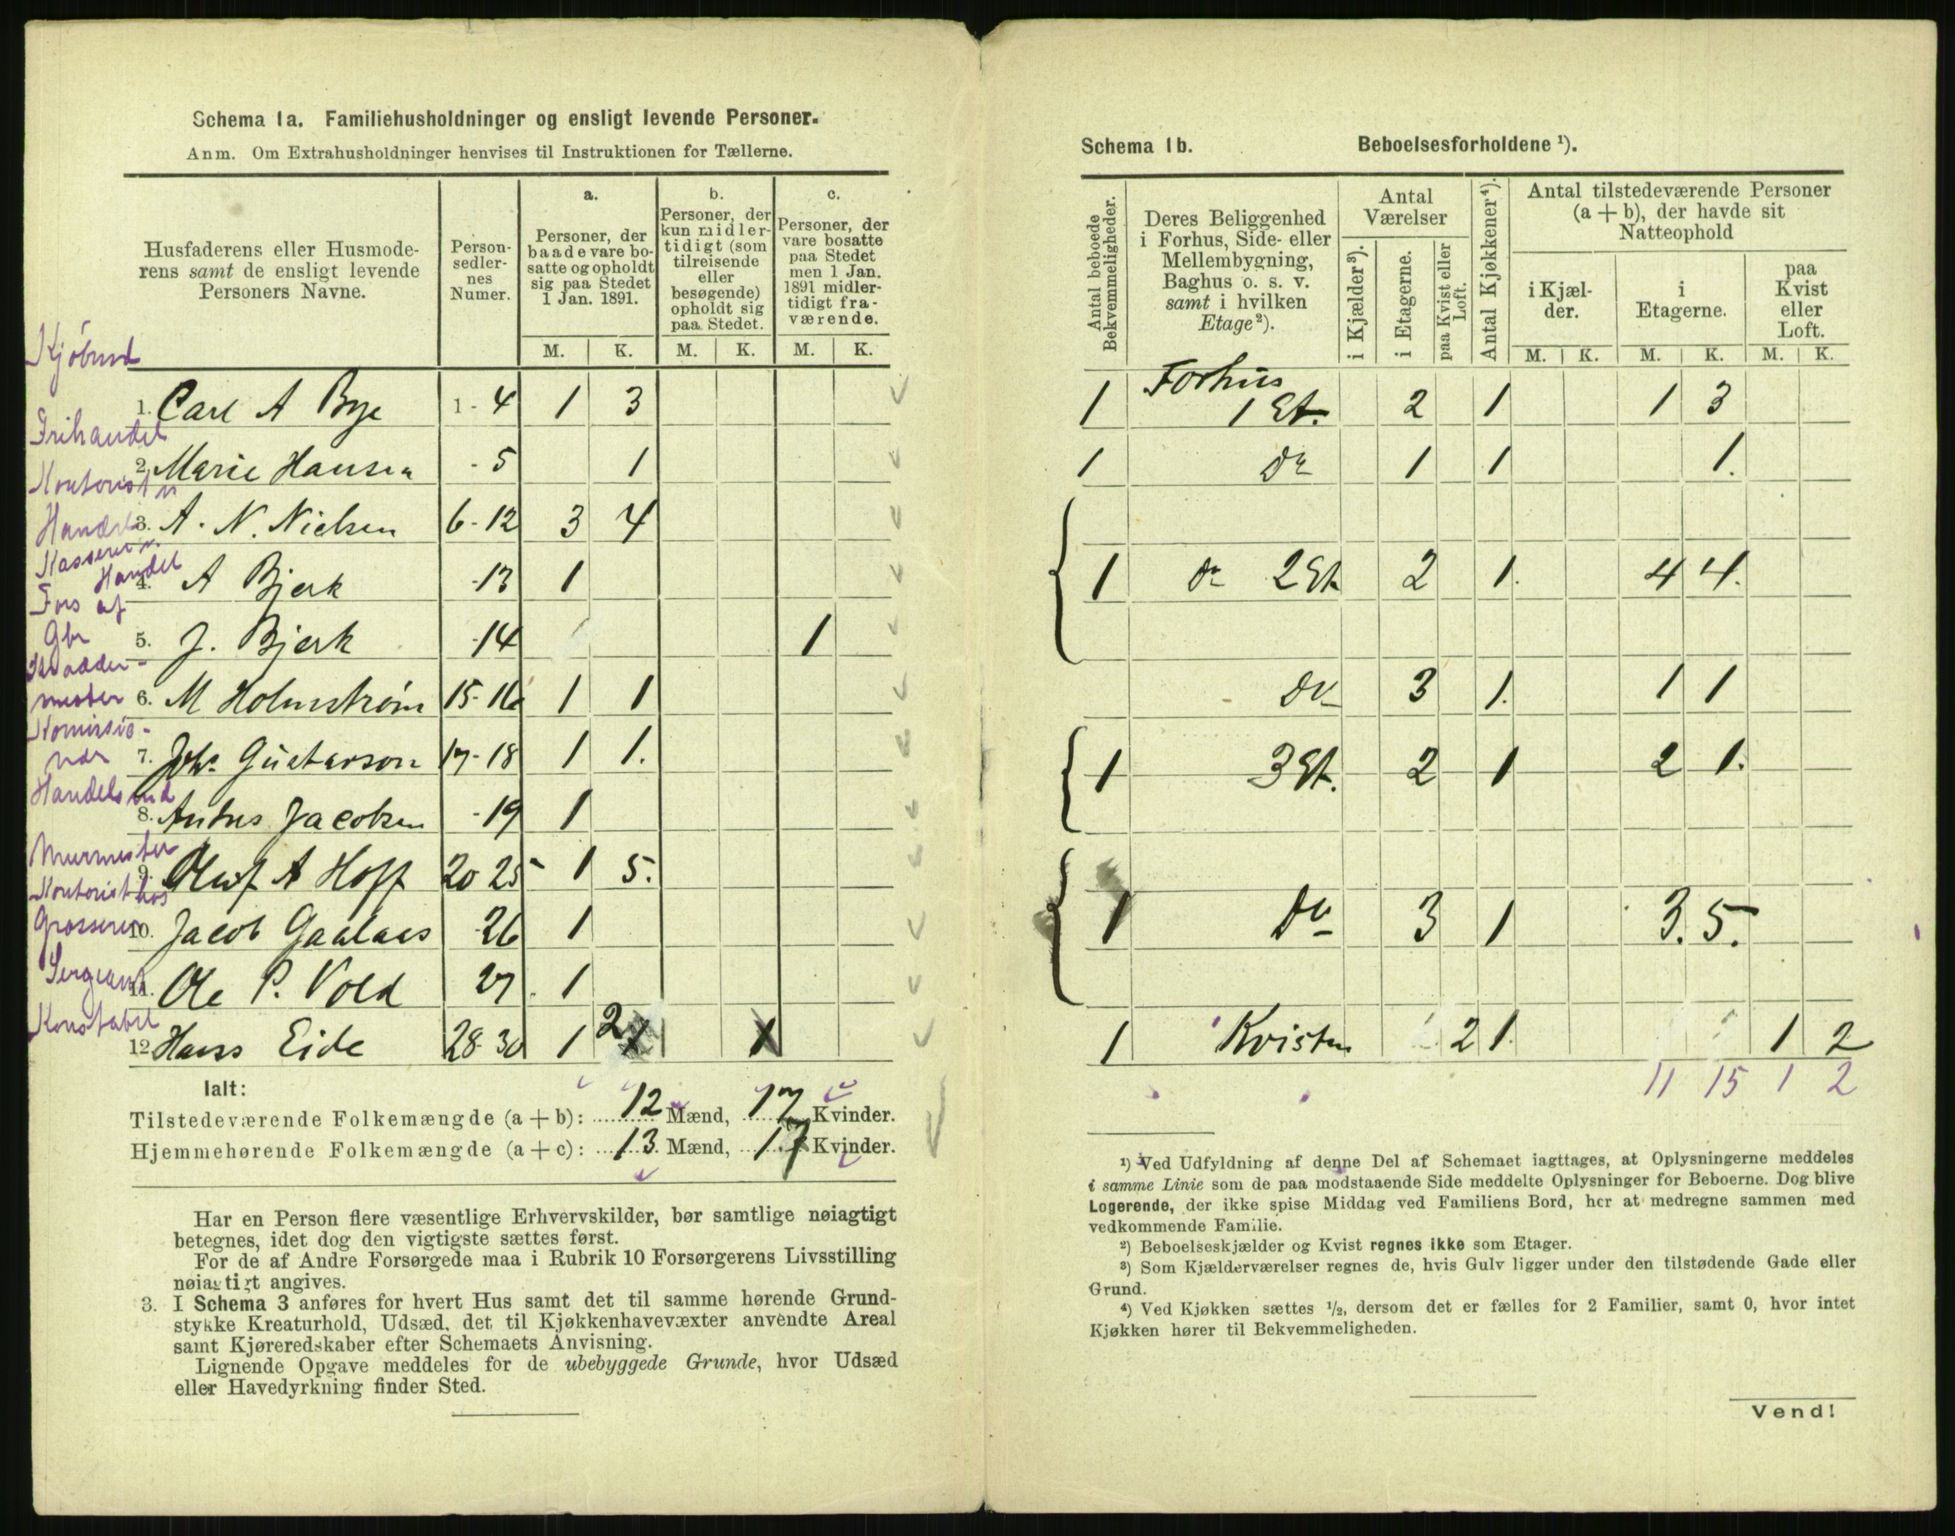 Schema 1a. Familiehusholdninger og ensligt levende Personer.
Anm. Om Extrahusholdninger henvises til Instruktionen for Tællerne.
Husfaderens eller Husmode-
rens samt de ensligt levende
Personers Navne.
Person-
sedler-
nes
Numer.
a.
Personer, der
baade vare bo-
satte og opholdt
sig paa Stedet
1 Jan. 1891.
b.
Personer, der
kun midler-
tidigt (som
tilreisende
eller
besøgende)
opholdt sig
paa Stedet.
c.
Personer, der
vare bosatte
paa Stedet
men 1 Jan.
1891 midler-
tidigt fra-
værende.
M. K. M. K. M. K.
Kjøbmd
1. Carl A Bye 1-4 1 3
Frihandel
2. Marie Hansen -5 1
Kontorist v
3. A. N. Nielsen 6-12 3 4
Handel
Kasserer v.
Handel
4. A Bjerk -13 1
Fors af
Gbr
5. J. Bjerk -14 1
Skrædder-
mester
6. M Holmstrøm 15-16 1 1
Komissio-
nær
7. Johs Gustavson 17-18 1 1.
Handelsmd
8. Anthus Jacobsen -19 1
Murmester
9. Oluf A Hoff 20 25 1 5.
Kontorist hos
Grosserer
10. Jacob Gaalaas -26 1
Sergeant
11. Ole P. Vold 27 1
Konstabel
12 Hans Eide 28-30 1 2 1 1
Ialt:
Tilstedeværende Folkemængde (a + b): 12 Mænd, 17 Kvinder.
Hjemmehørende Folkemængde (a + c): 13 Mænd, 17 Kvinder.
Har en Person flere væsentlige Erhvervskilder, bør samtlige nøiagtigt
betegnes, idet dog den vigtigste sættes først.
For de af Andre Forsørgede maa i Rubrik 10 Forsørgerens Livsstilling
nøiagtigt angives.
3. I Schema 3 anføres for hvert Hus samt det til samme hørende Grund-
stykke Kreaturhold, Udsæd, det til Kjøkkenhavevæxter anvendte Areal
samt Kjøreredskaber efter Schemaets Anvisning.
Lignende Opgave meddeles for de ubebyggede Grunde, hvor Udsæd
eller Havedyrkning finder Sted.
Schema 1b. Beboelsesforholdene ¹).
Antal beboede
Bekvemmeligheder.
Deres Beliggenhed
i Forhus, Side- eller
Mellembygning,
Baghus o. s. v.
samt i hvilken
Etage²).
Antal
Værelser
i Kjælder³).
i Etagerne.
paa Kvist eller
Loft.
Antal Kjøkkener⁴).
Antal tilstedeværende Personer
(a + b), der havde sit
Natteophold
i Kjæl-
der.
i
Etagerne.
paa
Kvist
eller
Loft.
M. K. M. K. M. K.
1 Forhus
1 Et. 2 1 1 3
1 Do 1 1 1.
1 Do 2 Et 2 1. 4 4.
Do 3 1. 1 1
1 3 Et. 2 1 2 1.
1 Do 3 1 3. 5.
1 Kvisten 2 1. 1 2
11 15 1 2
¹) Ved Udfyldning af denne Del af Schemaet iagttages, at Oplysningerne meddeles
i samme Linie som de paa modstaaende Side meddelte Oplysninger for Beboerne. Dog blive
Logerende, der ikke spise Middag ved Familiens Bord, her at medregne sammen med
vedkommende Familie.
²) Beboelseskjælder og Kvist regnes ikke som Etager.
³) Som Kjælderværelser regnes de, hvis Gulv ligger under den tilstødende Gade eller
Grund.
⁴) Ved Kjøkken sættes ½, dersom det er fælles for 2 Familier, samt 0, hvor intet
Kjøkken hører til Bekvemmeligheden.
Vend!